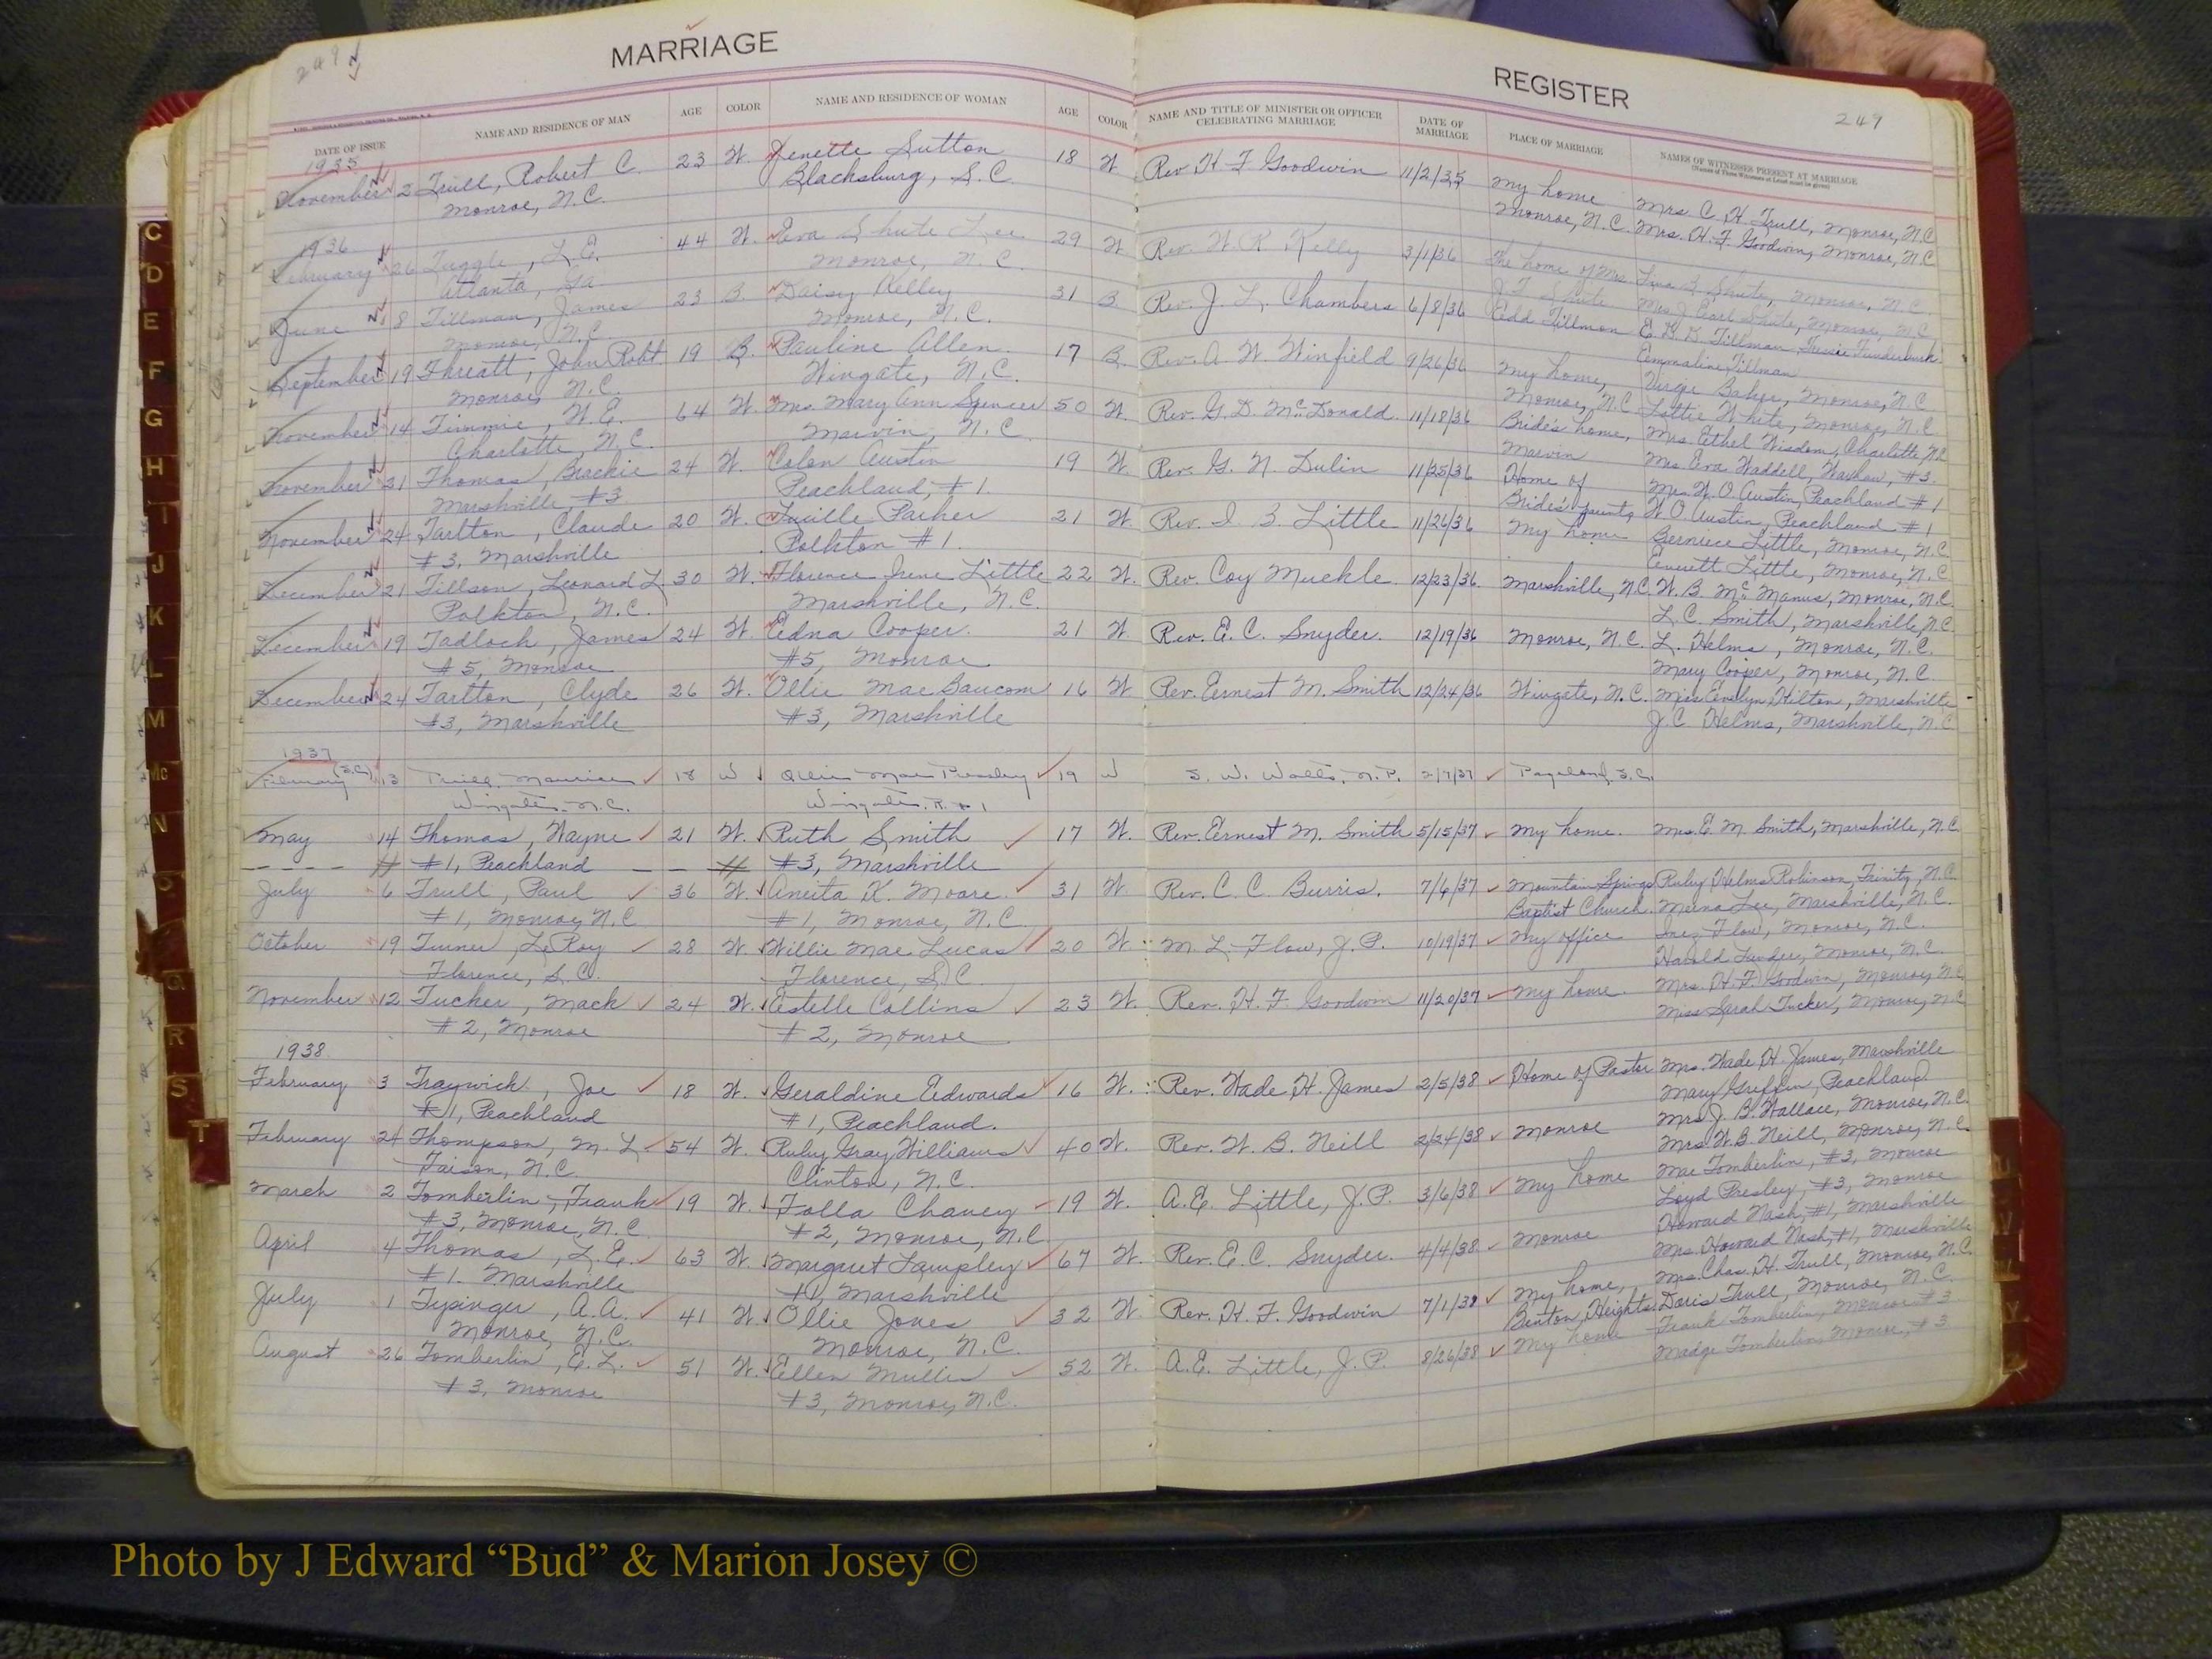 MARRIAGE
REGISTER
249
249
DATE OF ISSUE NAME AND RESIDENCE OF MAN AGE COLOR NAME AND RESIDENCE OF WOMAN AGE COLOR NAME AND TITLE OF MINISTER OR OFFICER CELEBRATING MARRIAGE DATE OF MARRIAGE PLACE OF MARRIAGE NAMES OF WITNESSES PRESENT AT MARRIAGE
1935
November 2 Trull, Robert C. 23 W. Jenette Sutton 18 W Rev H F Goodwin 11/2/35 My home Mrs. C H Trull, Monroe, N.C
Monroe, N.C. Blacksburg, S.C. Monroe, N.C. Mrs. H. F. Goodwin, Monroe, N.C
1936
February 26 Tuggle, L.E. 44 W. Eva Shute Lee 29 W Rev. W. R. Kelly 3/1/36 The home of Mrs. Shute, Monroe, N.C.
Atlanta, Ga Monroe, N.C. J. T. Shute Mrs J Earl Shute, Monroe, N.C
June 8 Tillman, James 23 B. Daisy Kelley 31 B. Rev. J. L. Chambers 6/8/36 Edd Tillman E. Tillman, Funderburk
Monroe, N.C Monroe, N.C. Emmaline Tillman
September 19 Threatt, John Robt. 19 B. Pauline Allen 17 B. Rev. A. W. Winfield 9/26/36 My home, Virge Baker, Monroe, N.C
Monroe, N.C. Wingate, N.C. Monroe, N.C Lottie White, Monroe, N.C
November 14 Timmie, W.E. 64 W. Mrs. Mary Ann Spencer 50 W. Rev. G. D. McDonald 11/18/36 Bride's home, Mrs. Ethel Wisdom, Charlotte, N.C
Charlotte, N.C. Marvin, N.C. Marvin Mrs Eva Waddell, Waxhaw, #3.
November 21 Thomas, Brachie 24 W. Colon Austin 19 W. Rev. G. N. Dulin 11/25/36 Home of Mrs. W. O Austin, Peachland #1
Marshville #3 Peachland, #1. Bride's parents W O Austin, Peachland #1
November 24 Tarlton, Claude 20 W. Lucille Parker 21 W. Rev. I. B. Little 11/26/36 My home Berniece Little, Monroe, N.C
#3, Marshville Polkton #1. Everett Little, Monroe, N.C
December 21 Tillson, Leonard L. 30 W. Florence Irene Little 22 W. Rev. Coy Muckle 12/23/36 Marshville, N.C. W. B. McManus, Monroe, N.C.
Polkton, N.C. Marshville, N.C. L. C. Smith, Marshville, N.C.
December 19 Tadlock, James 24 W. Edna Cooper. 21 W. Rev. E. C. Snyder. 12/19/36 Monroe, N.C. L. Helms, Monroe, N.C.
#5, Monroe #5, Monroe Mary Cooper, Monroe, N.C.
December 24 Tarlton, Clyde 26 W. Ollie Mae Baucom 16 W Rev. Ernest M. Smith 12/24/36 Wingate, N.C. Miss Evelyn Hilton, Marshville
#3, Marshville #3, Marshville J. C Helms, Marshville, N.C
1937
February (S.C.) 13 Trull, Maurice 18 W Ollie Mae Pressley 19 W S. W. Watts, N.P. 2/7/37 Pageland, S.C.
Wingate, N.C. Wingate, R. #1
May 14 Thomas, Wayne 21 W. Ruth Smith 17 W. Rev. Ernest M. Smith 5/15/37 My home. Mrs. E. M. Smith, Marshville, N.C.
#1, Peachland #3, Marshville
July 6 Trull, Paul 36 W. Aneita K. Moore. 31 W. Rev. C. C. Burris. 7/6/37 Mountain Springs Ruby Helms Robinson, Trinity, N.C.
#1, Monroe, N.C #1, Monroe, N.C Baptist Church. Merna Lee, Marshville, N.C.
October 19 Turner, LeRoy 28 W. Willie Mae Lucas 20 W. M. L. Flow, J.P. 10/19/37 My office Inez Flow, Monroe, N.C.
Florence, S.C. Florence, S.C Harold Funder, Monroe, N.C.
November 12 Tucker, Mack 24 W. Estelle Collins 23 W. Rev. H. F. Goodwin 11/20/37 My home. Mrs. H. F. Goodwin, Monroe, N.C
#2, Monroe #2, Monroe Miss Sarah Tucker, Monroe, N.C
1938.
February 3 Traywick, Joe 18 W. Geraldine Edwards 16 W. Rev. Wade H. James 2/5/38 Home of Pastor Mrs. Wade H. James, Marshville
#1, Peachland #1, Peachland. Mary Griffin, Peachland
February 24 Thompson, M. L. 54 W. Ruby Gray Williams 40 W. Rev. W. B. Neill 2/24/38 Monroe Mrs. J. B. Wallace, Monroe, N.C.
Faison, N.C. Clinton, N.C. Mrs. W. B. Neill, Monroe, N.C.
March 2 Tomberlin, Frank 19 W. Folla Chaney 19 W. A.E. Little, J.P. 3/6/38 My home Mae Tomberlin, #3, Monroe
#3, Monroe, N.C. #2, Monroe, N.C Loyd Presley, #3, Monroe
April 4 Thomas, L. E. 63 W. Margaret Lampley 67 W. Rev. E. C. Snyder. 4/4/38 Monroe Howard Nash, #1, Marshville
#1. Marshville #1, Marshville Mrs. Howard Nash, #1, Marshville
July 1 Tysinger, A.A. 41 W. Ollie Jones 32 W. Rev. H. F. Goodwin 7/1/38 My home, Mrs. Chas. H. Trull, Monroe, N.C.
Monroe, N.C. Monroe, N.C. Benton Heights. Doris Trull, Monroe, N.C.
August 26 Tomberlin, E. L. 51 W. Ellen Mullis 52 W. A.E. Little, J.P. 8/26/38 My home Frank Tomberlin, Monroe #3
#3, Monroe #3, Monroe, N.C. Madge Tomberlin, Monroe, #3
C
D
E
F
G
H
I
J
K
L
M
Mc
N
O
Q
R
S
T
Photo by J Edward “Bud” & Marion Josey ©